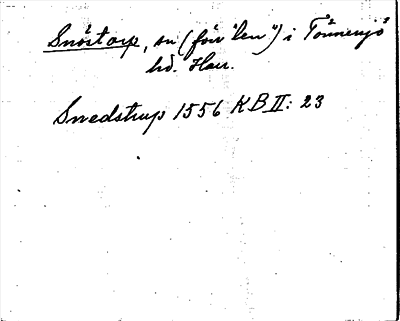 Snöstorp, sn (förr "len") i Tönnersjö
hd. Hall.
Snedstrup 1556 KB II: 23